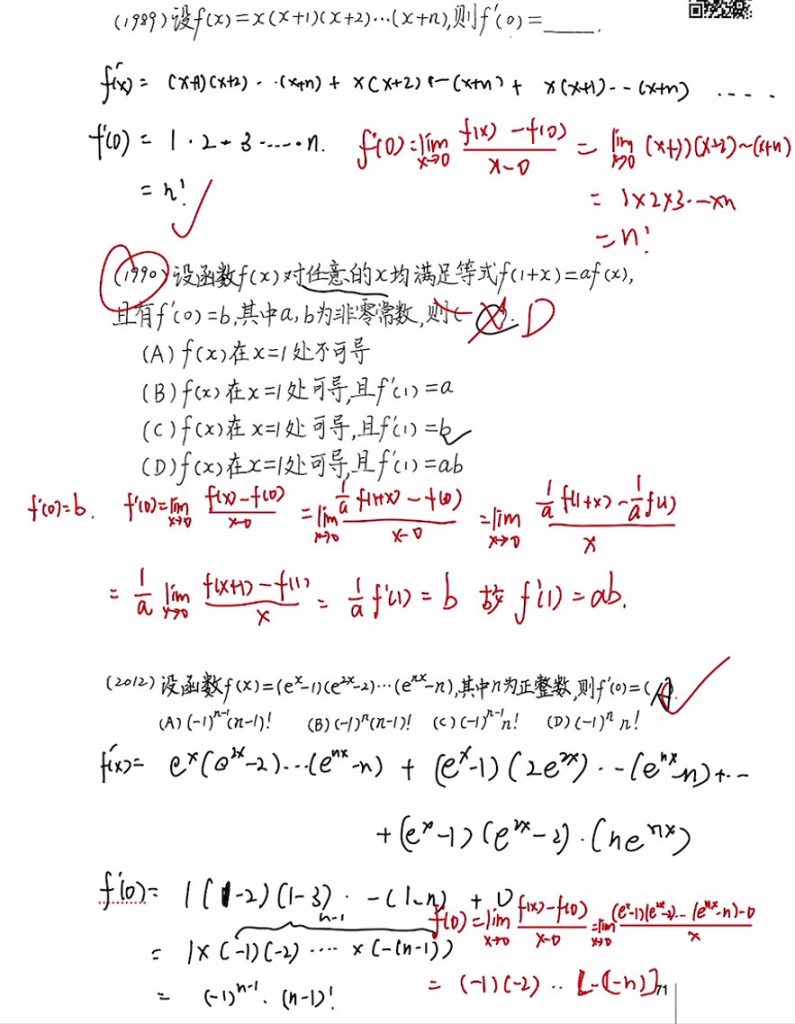 (1989)设f(x)=x(x+1)(x+2)…(x+n),则f′(0)=____.
f′(x)= (x+1)(x+2)…(x+n) + x(x+2)…(x+n) + x(x+1)…(x+n) ....
f′(0) = 1·2·3……n. f′(0)=lim x→0 f(x)-f(0)/x-0 = lim x→0 (x+1)(x+2)~(x+n)
= n! = 1×2×3…×n
=n!
(1990)设函数f(x)对任意的x均满足等式f(1+x)=af(x),
且有f′(0)=b,其中a,b为非零常数,则( ). D
(A)f(x)在x=1处不可导
(B)f(x)在x=1处可导,且f′(1)=a
(C)f(x)在x=1处可导,且f′(1)=b
(D)f(x)在x=1处可导,且f′(1)=ab
f′(0)=b. f′(0)=lim x→0 f(x)-f(0)/x-0 = lim x→0 1/a f(1+x)-f(0)/x-0 = lim x→0 1/a f(1+x)-1/a f(1)/x
= 1/a lim x→0 f(x+1)-f(1)/x = 1/a f′(1) = b 故 f′(1)=ab.
(2012)设函数f(x)=(eˣ-1)(e²ˣ-2)…(eⁿˣ-n),其中n为正整数,则f′(0)=(A).
(A)(-1)ⁿ⁻¹(n-1)! (B)(-1)ⁿ(n-1)! (C)(-1)ⁿ⁻¹n! (D)(-1)ⁿn!
f′(x)= eˣ(e²ˣ-2)…(eⁿˣ-n) + (eˣ-1)(2e²ˣ)…(eⁿˣ-n)+…
+(eˣ-1)(e²ˣ-2)·(neⁿˣ)
f′(0)= 1(1-2)(1-3)…(1-n) + 0
n-1
f′(0)=lim x→0 f(x)-f(0)/x-0 = lim x→0 (eˣ-1)(e²ˣ-2)…(eⁿˣ-n)-0/x
= 1×(-1)(-2)….×(-(n-1))
= (-1)(-2)..[-(-n)]
= (-1)ⁿ⁻¹·(n-1)!
71